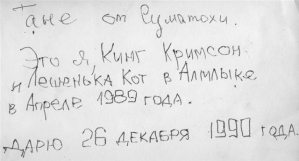 Тане от Суматохи.
Это я, Кинг Кримсон
и Лёшенька Кот в Алмлыке
в Апреле 1989 года.
Дарю 26 декабря 1990 года.